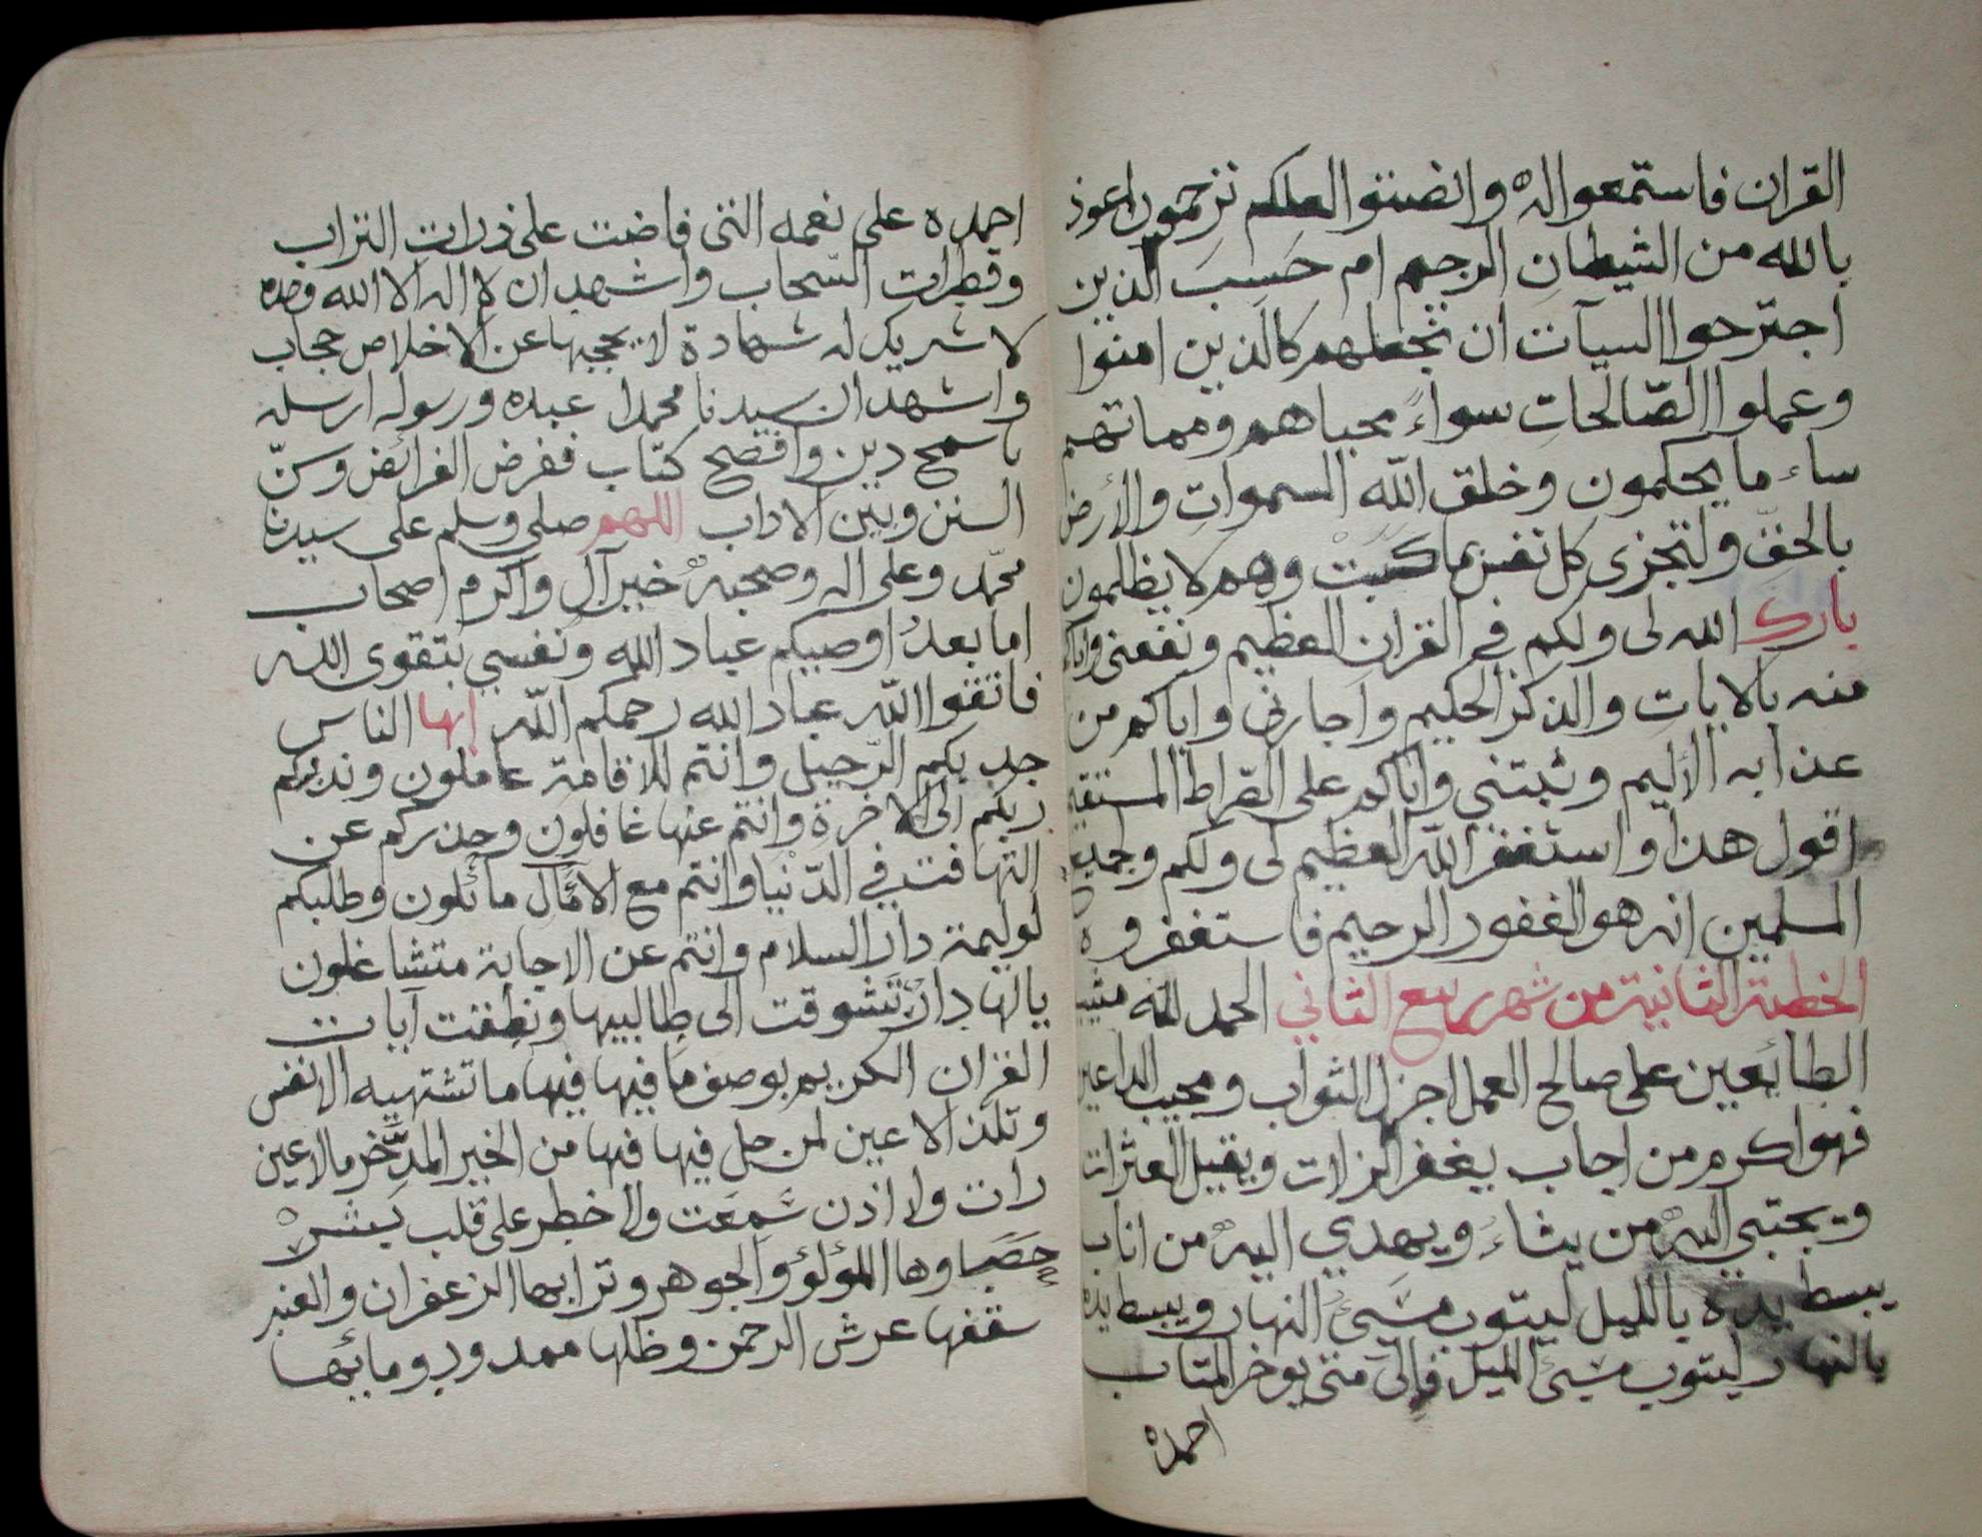 القران فاستمعوا له وانصتوا لعلكم ترحمون اعوذ
بالله من الشيطان الرجيم ام حَسِبَ الذين
اجترحوا السيآت ان نجعلهم كالذين امنوا
وعملوا الصّالحاتِ سواءً محياهم ومماتهم
ساء ما يحكمون وخلق الله السمواتِ والأرض
بالحقّ ولتجزى كل نفس بما كسَبَتْ وهم لا يظلمون
بارك الله لى ولكم فى القران العظيم ونفعنى واياكم
منه بالايات والذكر الحكيم واجارنى واياكم من
عذابه الأليم وثبتني واياكم على الصراط المستقيم
اقول هذا واستغفر الله العظيم لى ولكم ولجميع
المسلمين انه هو الغفور الرحيم فاستغفروه
الخطبة الثانية من شهر ربيع الثاني الحمد لله مثيب
الطائعين على صالح العمل اجزل الثواب ومجيب الداعين
فهو اكرم من اجاب يغفر الزلات ويقيل العثرات
ويجتبي اليه من يشاءُ ويهدي اليه من اناب
يبسط يده بالليل ليتوب مسَيئُ النهار ويبسط يده
بالنهار ليتوب مسَيئ الليل فإلى متى يوخر المتاب
احمده
احمده على نعمه التى فاضت على ذرات التراب
وقطرات السّحاب واشهد ان لا اله الا الله وحده
لا شريك له شهادة لا يحجبها عن الاخلاص حجاب
واشهد ان سيدنا محمدا عبده ورسوله ارسله
باسمح دين وافصح كتاب ففرض الفرائض وسنّ
السنن وبين الاداب اللهم صلى وسلم على سيدنا
محمّد وعلى اله وصحبه خير آلٍ واكرم اصحاب
اما بعدُ اوصيكم عباد الله ونفسي بتقوى الله
فاتقوا الله عباد الله رحمكم الله ايها الناس
جد بكم الرّحيل وانتم للاقامة عاملون وندبكم
ربكم الى الاخرة وانتم عنها غافلون وحذركم عن
التهافت في الدّنيا وانتم مع الآمال مائلون وطلبكم
لوليمة دار السلام وانتم عن الاجابة متشاغلون
يالها دارٌ تَشوقت الى طالبيها ونطقت آيات
القران الكريم بوصف ما فيها فيها ما تشتهيه الانفس
وتلذ الاعين لمن حل فيها فيها من الخير المدَّخر مالا عين
رات ولا اذن سَمِعَت ولا خطر على قلب بشر
حَصَباوها اللؤلؤ والجوهر وترابها الزعفران والعنبر
سقفها عرش الرحمن وظلها ممدود ومائها